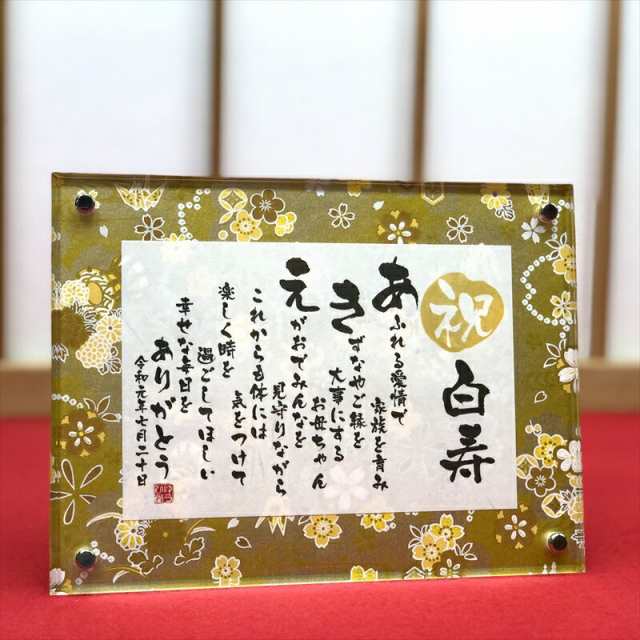 祝
白寿
あふれる愛情で
家族を育み
きずなやご縁を
大事にする
お母ちゃん
えがおでみんなを
見守りながら
これからも体には
気をつけて
楽しく時を
過ごしてほしい
幸せな毎日を
ありがとう
令和元年七月二十日